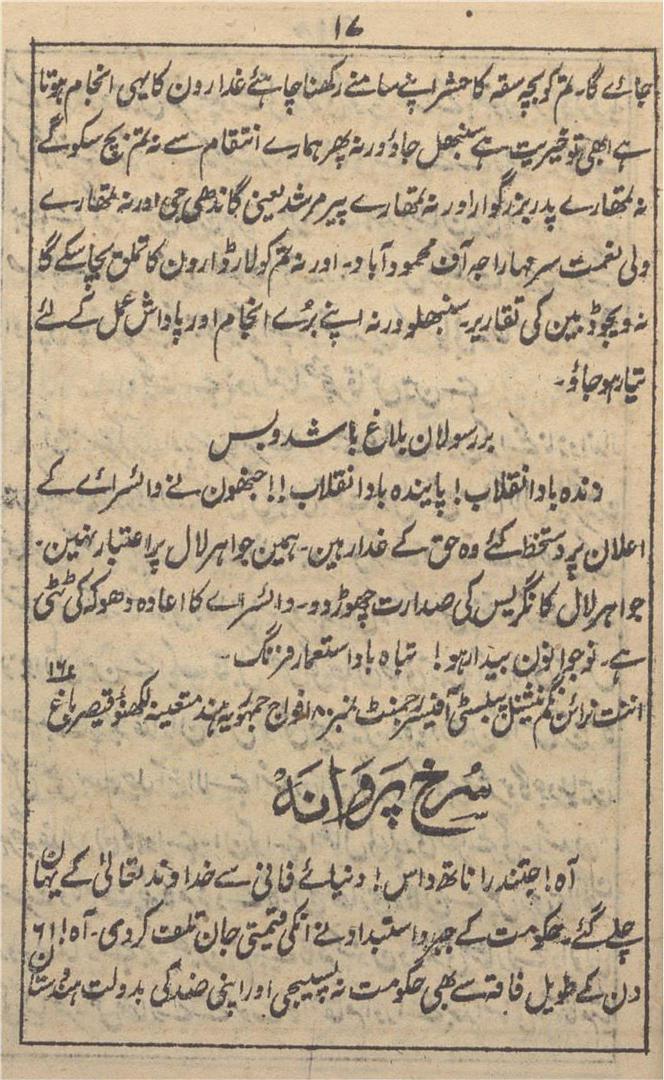 ۱۷
جائے گا۔ تم کو بچہ سقہ کا حشر اپنے سامنے رکھنا چاہئے غدارون کا یہی انجام ہوتا
ہے ابھی تو خیریت ہے سنبھل جاؤ ورنہ پھر ہمارے انتقام سے نہ تم بچ سکو گے
نہ تمھارے پدر بزرگوار اور نہ تمھارے پیر مرشد یعنی گاندھی جی اور نہ تمھارے
ولی نعمت سر مہاراجہ آف محمود آباد۔ اور نہ تم کو لارڈ اردن کا تملق بچا سکے گا
نہ ویجوڈ بین کی تقاریر۔ سنبھلو ورنہ اپنے برُے انجام اور پاداش عمل کے لئے
تیار ہو جاؤ۔
بر رسولان بلاغ باشد و بس
زندہ باد انقلاب! پایندہ باد انقلاب!! جنھون نے وائسرائے کے
اعلان پر دستخط کئے وہ حق کے غدار ہین۔ ہمین جواہر لال پر اعتبار نہین۔
جواہر لال کانگریس کی صدارت چھوڑ دو۔ وائسرائے کا اعادہ دھوکہ کی ٹٹی
ہے۔ نوجوانون بیدار ہو! تباہ باد استعمار فرنگ۔
اننت نرائن نگم نیشنل پبلسٹی آفیسر رجمنٹ نمبر ۸۰ افواج جمہوریہ ہند متعینہ لکھنؤ قیصر باغ ۱۶ء
سُرخ پَروَانَہ
آہ! جتندرا ناتھ داس! دنیائے فانی سے خداوند تعالیٰ کے یہان
چلے گئے۔ حکومت کے جبر و استبداد نے انکی قیمتی جان تلف کر دی۔ آہ! ۶۱
دن کے طویل فاقہ سے بھی حکومت نہ پسیجی اور اپنی ضد کی بدولت ہندستان